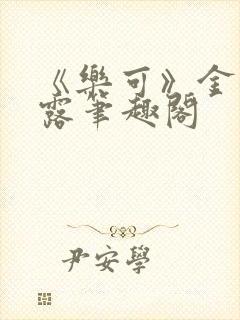 《樂可》金
露筆趣閣
尹安學